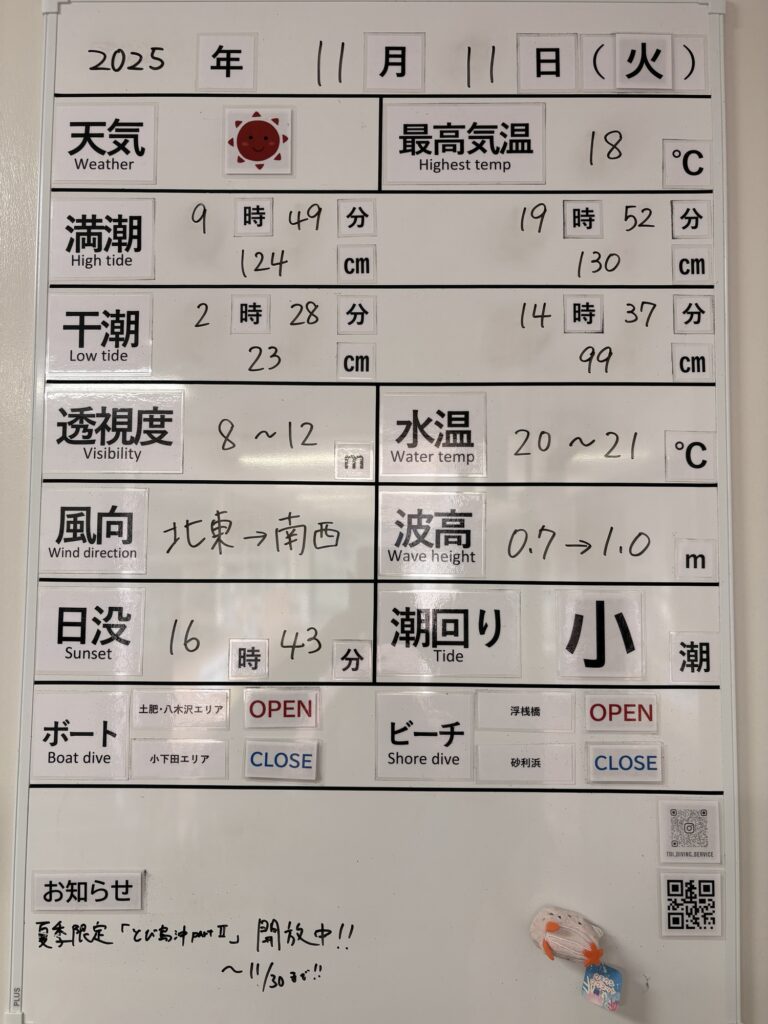 2025 年 11 月 11 日 (火)
天気 Weather
最高気温 Highest temp 18 ℃
満潮 High tide
9 時 49 分 19 時 52 分
124 cm 130 cm
干潮 Low tide
2 時 28 分 14 時 37 分
23 cm 99 cm
透視度 Visibility 8～12 m
水温 Water temp 20～21 ℃
風向 Wind direction 北東→南西
波高 Wave height 0.7→1.0 m
日没 Sunset 16 時 43 分
潮回り Tide 小 潮
ボート Boat dive
土肥・八木沢エリア OPEN
小下田エリア CLOSE
ビーチ Shore dive
浮桟橋 OPEN
砂利浜 CLOSE
TOI_DIVING_SERVICE
お知らせ
夏季限定「とび島沖partⅡ」開放中!!
～11/30まで!!
PLUS